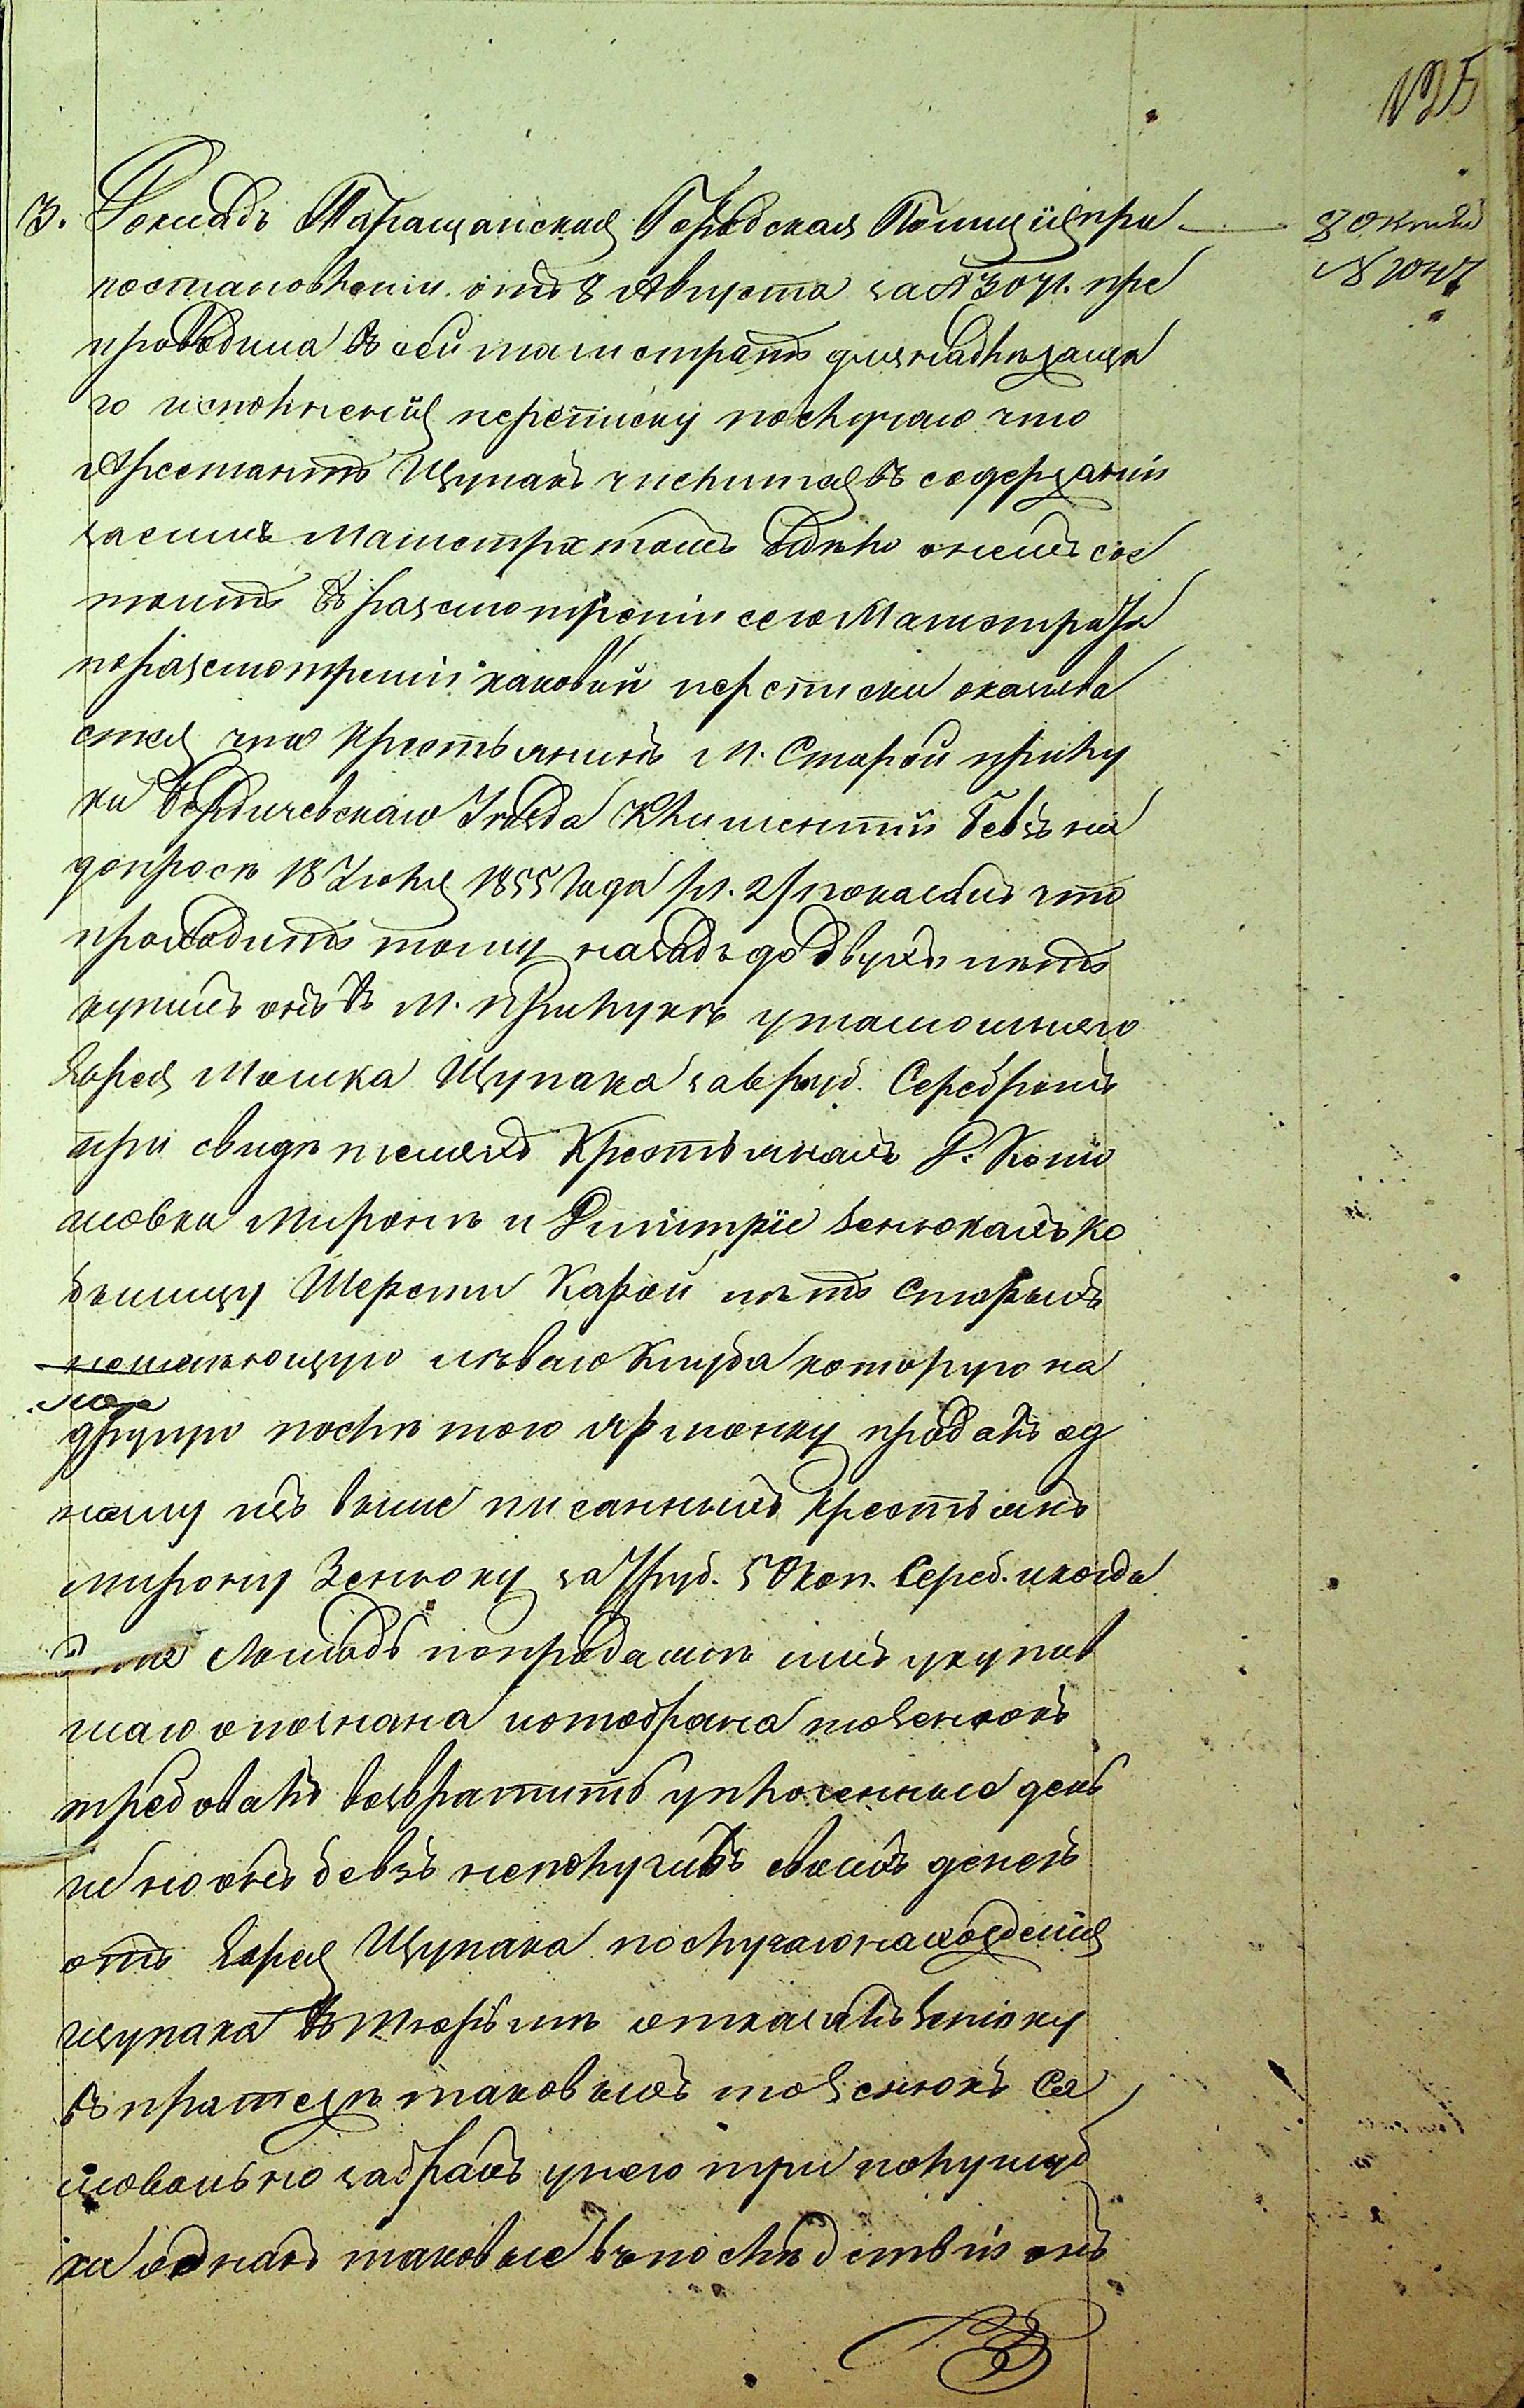 125
3. Докладъ Таращанская Городская Полиція при
8 октяб
постановленіи отъ 8 Августа за № 3071. пре
№ 1047
проводила въ сей магистратъ для надлежаща
го исполненія переписку послучаю что
Арестантъ Щупакъ числится въ содержаніи
засимъ Магистратомъ дѣло онемъ сос
тоитъ въ разсмотреніи сего Магистрата
поразсмотреніи каковой переписки оказыва
ется что Крестьянинъ М. Старой прилу
ки Бердичевскаго Уѣзда Климентій Бевзъ на
допросѣ 18 Іюля 1855 Года /л. 2/ показалъ что
проходитъ тому назадъ до двухъ лѣтъ
купилъ онъ въ М. Прилукѣ утамошняго
Еврея Мошка Щупака за 6 руб. Серебромъ
при свидѣтеляхъ Крестьянахъ Д. Кони
шовки Миронѣ и Дмитріе Зенюкахъ ко
былицу Шерсти Карой лѣтъ Старыхъ
лѣваго Клуба которую на
другую послѣ того ярмонку продалъ од
ному изъ выше писанныхъ Крестьянъ
Мирону Зенюку за 7 руб. 50 коп. Сереб. икогда
Лошадь попродажѣ имъ укупив
шаго опознана иотобрана тоЗенюкъ
требовалъ возвратить уплоченные день
ги но онъ Бевзъ неполучивъ своихъ денегъ
отъ Еврея Щупака послучаю нахожденія
щупака въ Тюрьмѣ отказалъ Зенюку
въ платежѣ таковыхъ то Зенюкъ Са
мовольно забралъ унего три полушуб
ка однакъ таковые въпослѣдствіи онъ